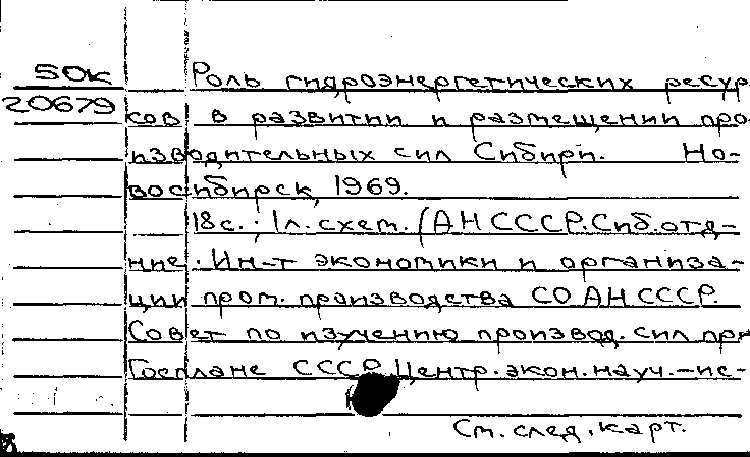 50к Роль гидроэнергетических ресур
20679 сов в развитии и размещении про-
изводительных сил Сибири. Но-
восибирск, 1969.
18 с.; 1 л. схем. (АН СССР. Сиб. отд-
ние. Ин-т экономики и организа-
ции пром. производства СО АН СССР.
Совет по изучению производ. сил при
Госплане СССР. Центр. экон. науч.-ис-
См. след. карт.